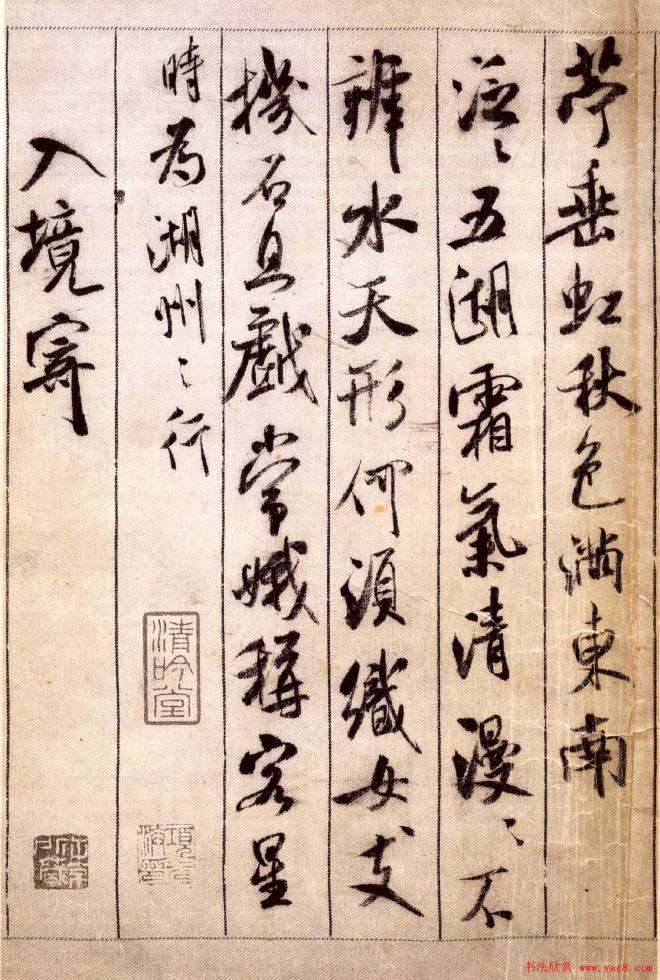 苧垂虹秋色滿東南
泛〻五湖霜氣清漫〻不
辨水天形何須織女支
機石且戲常娥稱客星
時為湖州〻行
入境寄
清吟堂
书法欣赏 www.yac8.com